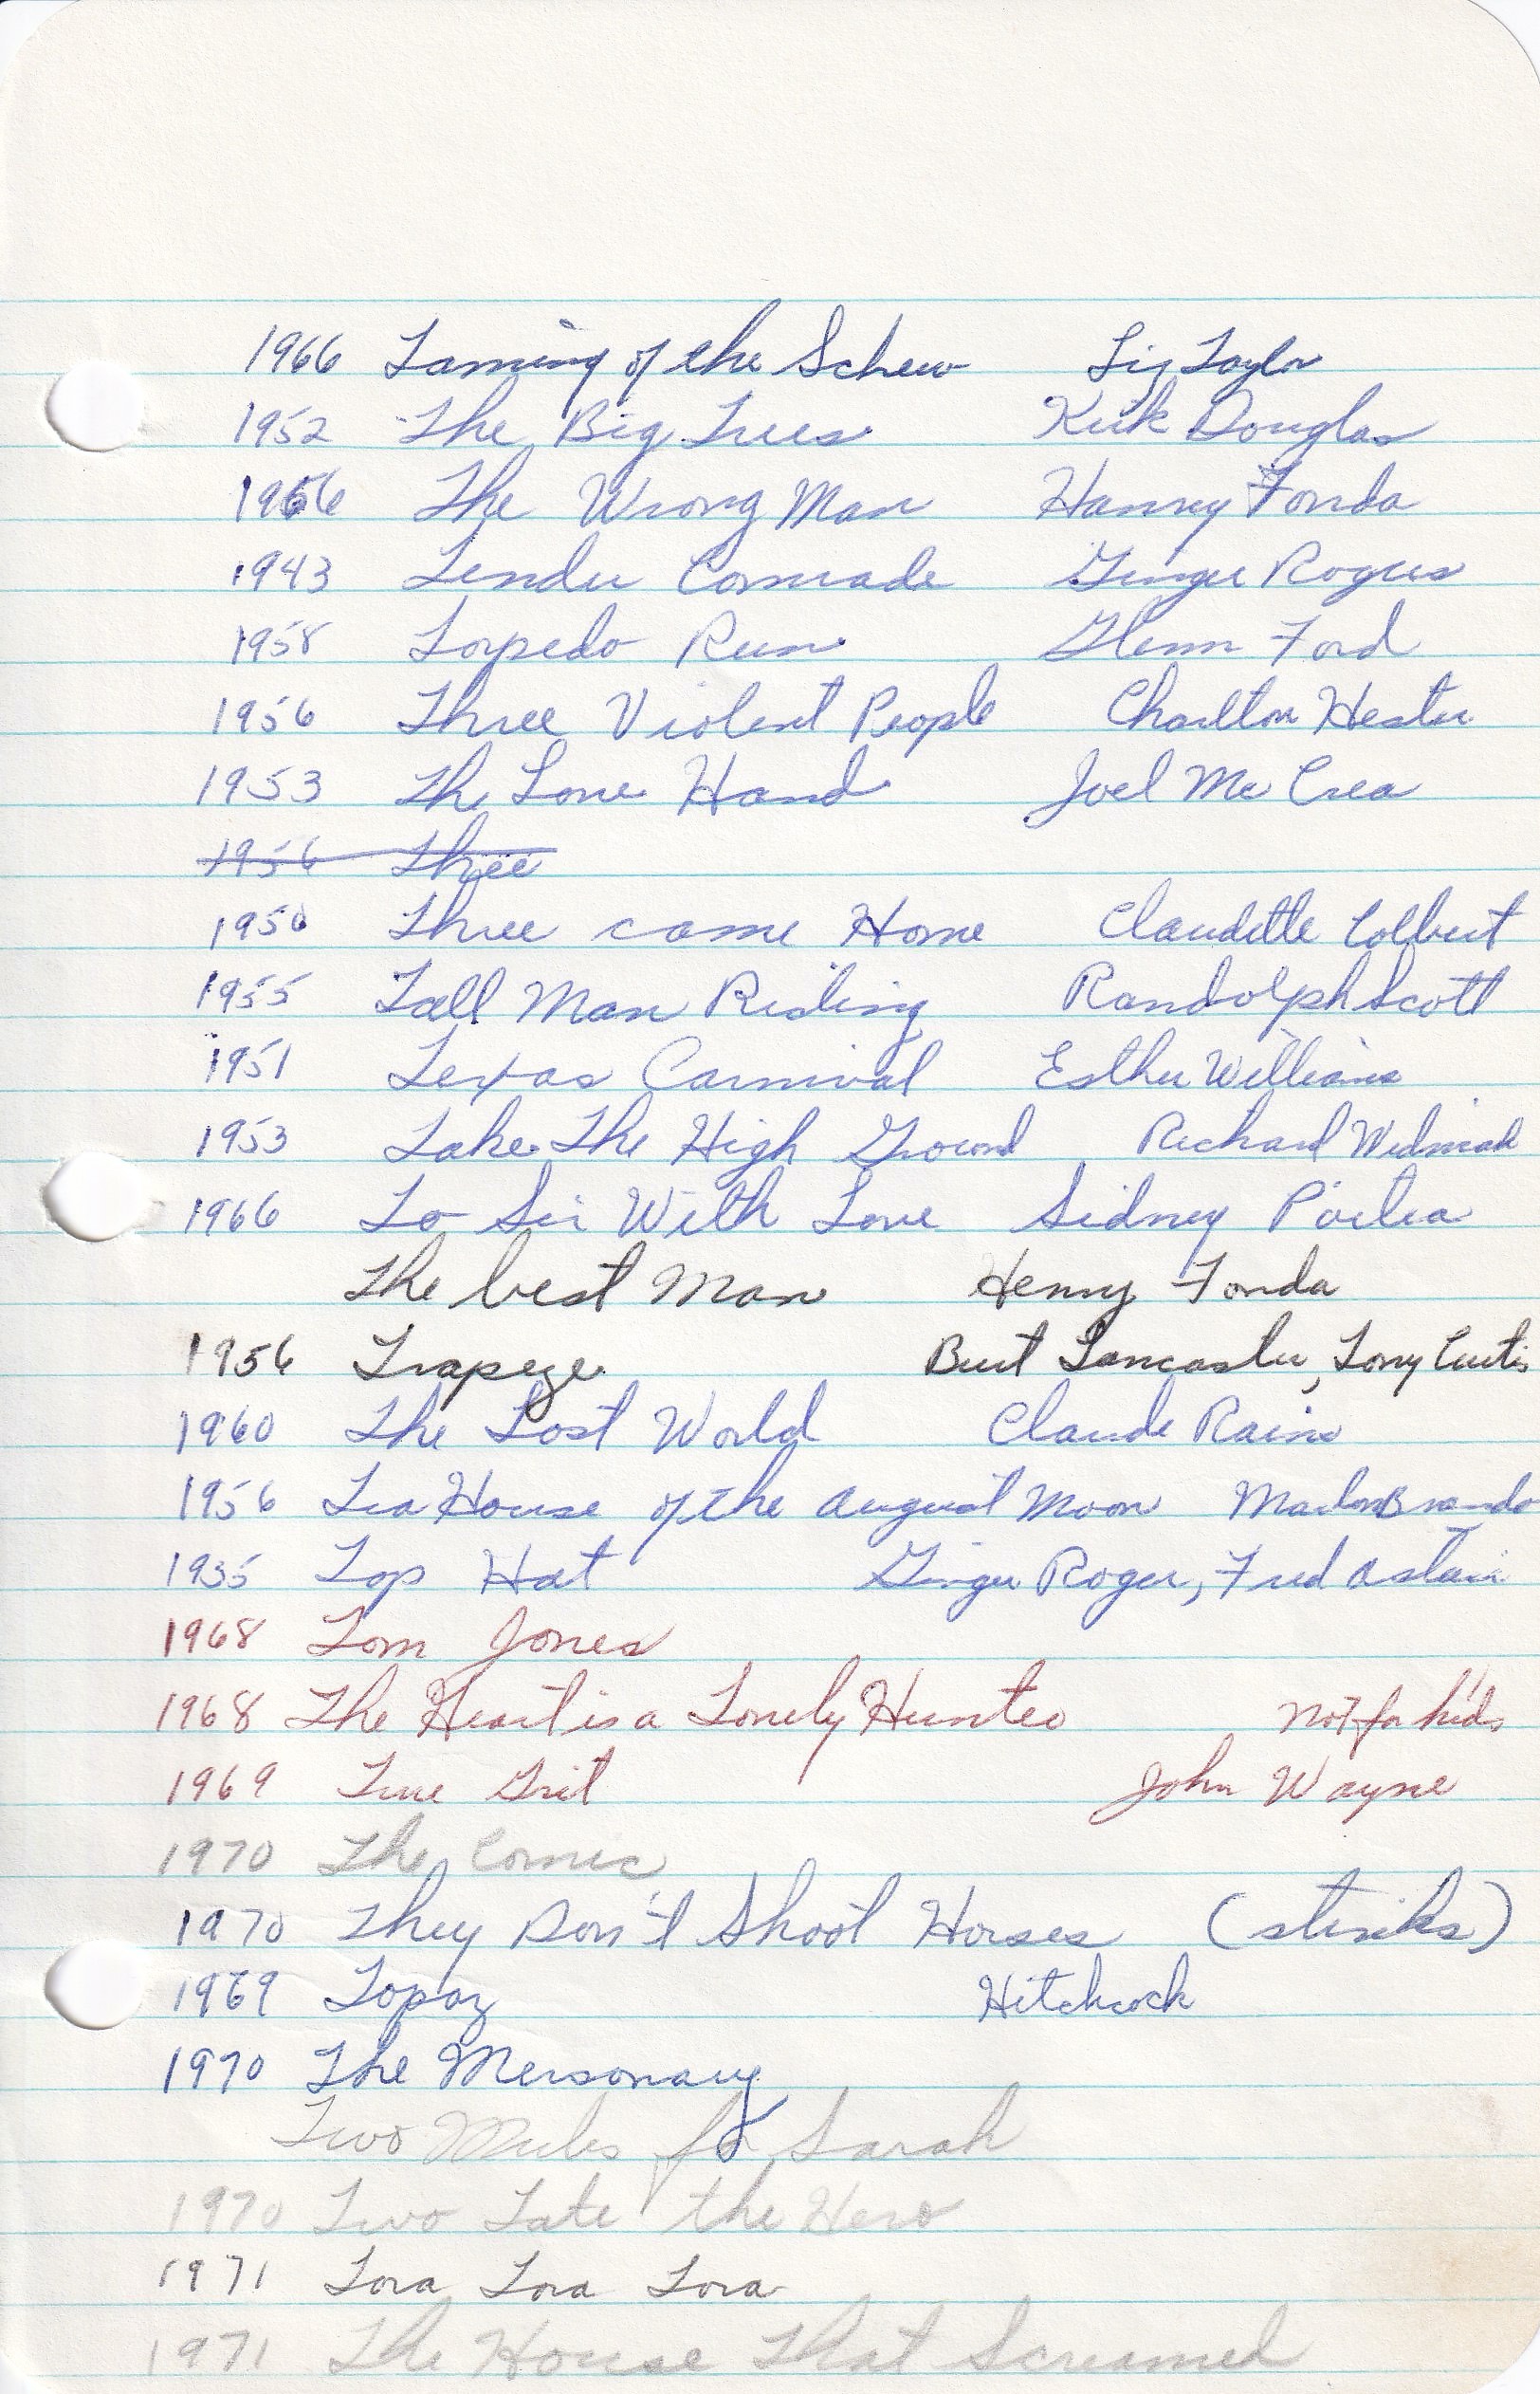 1966 Taming of the Schew Liz Taylor
1952 The Big Trees Kirk Douglas
1956 The Wrong Man Hanry Fonda
1943 Tender Comrade Ginger Rogers
1958 Torpedo Run Glenn Ford
1956 Three Violent People Charlton Hester
1953 Th Lone Hand Joel Mc Crea
1956 Three
1950 Three came Home Claudette Colbert
1955 Tall Man Riding Randolph Scott
1951 Texas Carnival Esther Williams
1953 Take The High Ground Richard Widmark
1966 To Sir With Love Sidney Poitea
The best Man Henry Fonda
1956 Trapeze Burt Lancaster, Tony Curtis
1960 The Lost World Claude Rains
1956 Tea House of the August Moon Marlon Brando
1935 Top Hat Ginger Roger, Fred Astair
1968 Tom Jones
1968 The Heart is a Lonely Hunter Not for kids
1969 True Grit John Wayne
1970 The Comic
1970 They Don't Shoot Horses (stinks)
1969 Topaz Hitchcock
1970 The Mersonary
Two Mules for Sarah
1970 Two Late the Hero
1971 Tora Tora Tora
1971 The House That Screamed